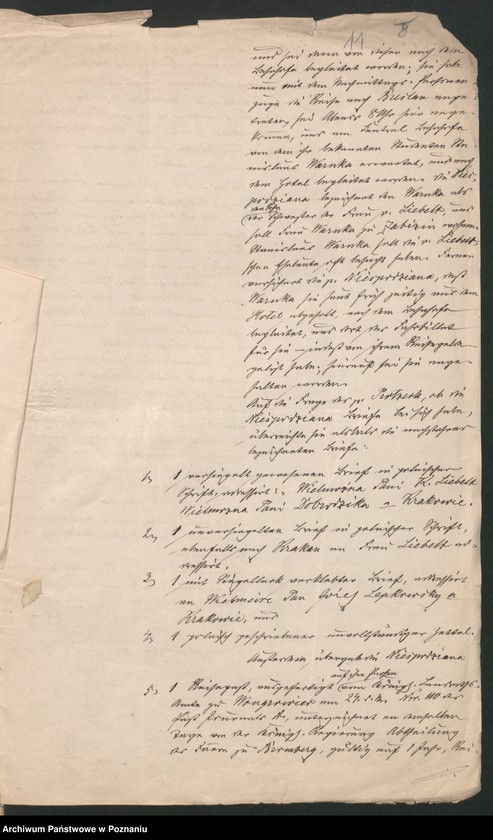 11
8
und sei dann von dieser nach dem
Bahnhofe begleitet worden; sie habe
nun mit dem Nachmittags-Personen
zuge die Reise nach Breslau ange
treten, sei Abends 8 Uhr hier ange
kommen, und am Central Bahnhofe
von dem ihr bekannten Studenten Sta
nislaus Warnka erwartet, und nach
dem Hotel begleitet worden. Die Nies
podziana bezeichnet den Warnka als
der Schwester der Frau v. Liebelt, und
soll Frau Warnka zu wohnen.
Stanislaus Warnka soll die v. Liebelt
schen Eheleute oft besucht haben. Ferner
versichert die p. Niespodziana, daß
Warnka sie heut früh zeitig aus dem
Hotel abgeholt, nach dem Bahnhofe
begleitet, und dort das Fahrbillet
für sie von ihrem Reisegelde
gelöst habe; hierauf sei sie ange
halten worden.
Auf die Frage des p. ob die
Niespodziana Briefe bei sich habe,
überreichte sie die nachstehend
bezeichneten Briefe:
1, 1 versiegelt gewesenen Brief in polnischer
Schrift, adressirt: Wielmożna Pani K. Liebelt
Wielmożna Pani Dobrodzika a Krakowie.
2, 1 unversiegelten Brief in polnischer Schrift,
ebenfalls nach Krakau an Frau Liebelt ad-
dressirt.
3, 1 mit Siegellack verklebter Brief, adressirt
an Pan Józef Lepkowsky a
Krakowie, und
4, 1 polnisch geschriebener unvollständiger Zettel.
Außerdem übergab die Niespodziana
5, 1 Reisepaß, ausgefertigt vom Königl. Landraths-
Amte zu Wongrowiec am 24. d. Mts. No. der
Paß Journals unterzeichnet an demselben
Tage von der Königl. Regierung Abtheilung
des Innern zu Bromberg, gültig auf 1 Jahr, Rei-
Archiwum Państwowe w Poznaniu